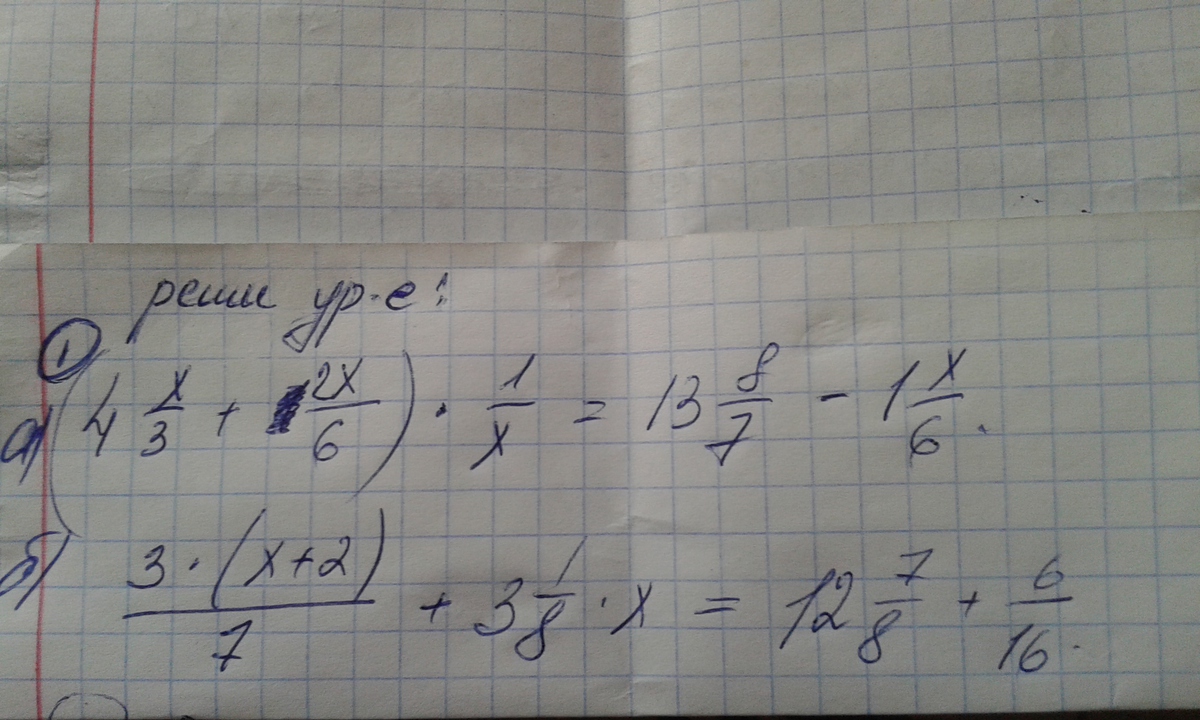 реши ур-е:
①
а) (4 x/3 + 2x/6) · 1/x = 13 8/7 - 1 x/6.
б) 3·(x+2)/7 + 3 1/8 · x = 12 7/8 + 6/16.